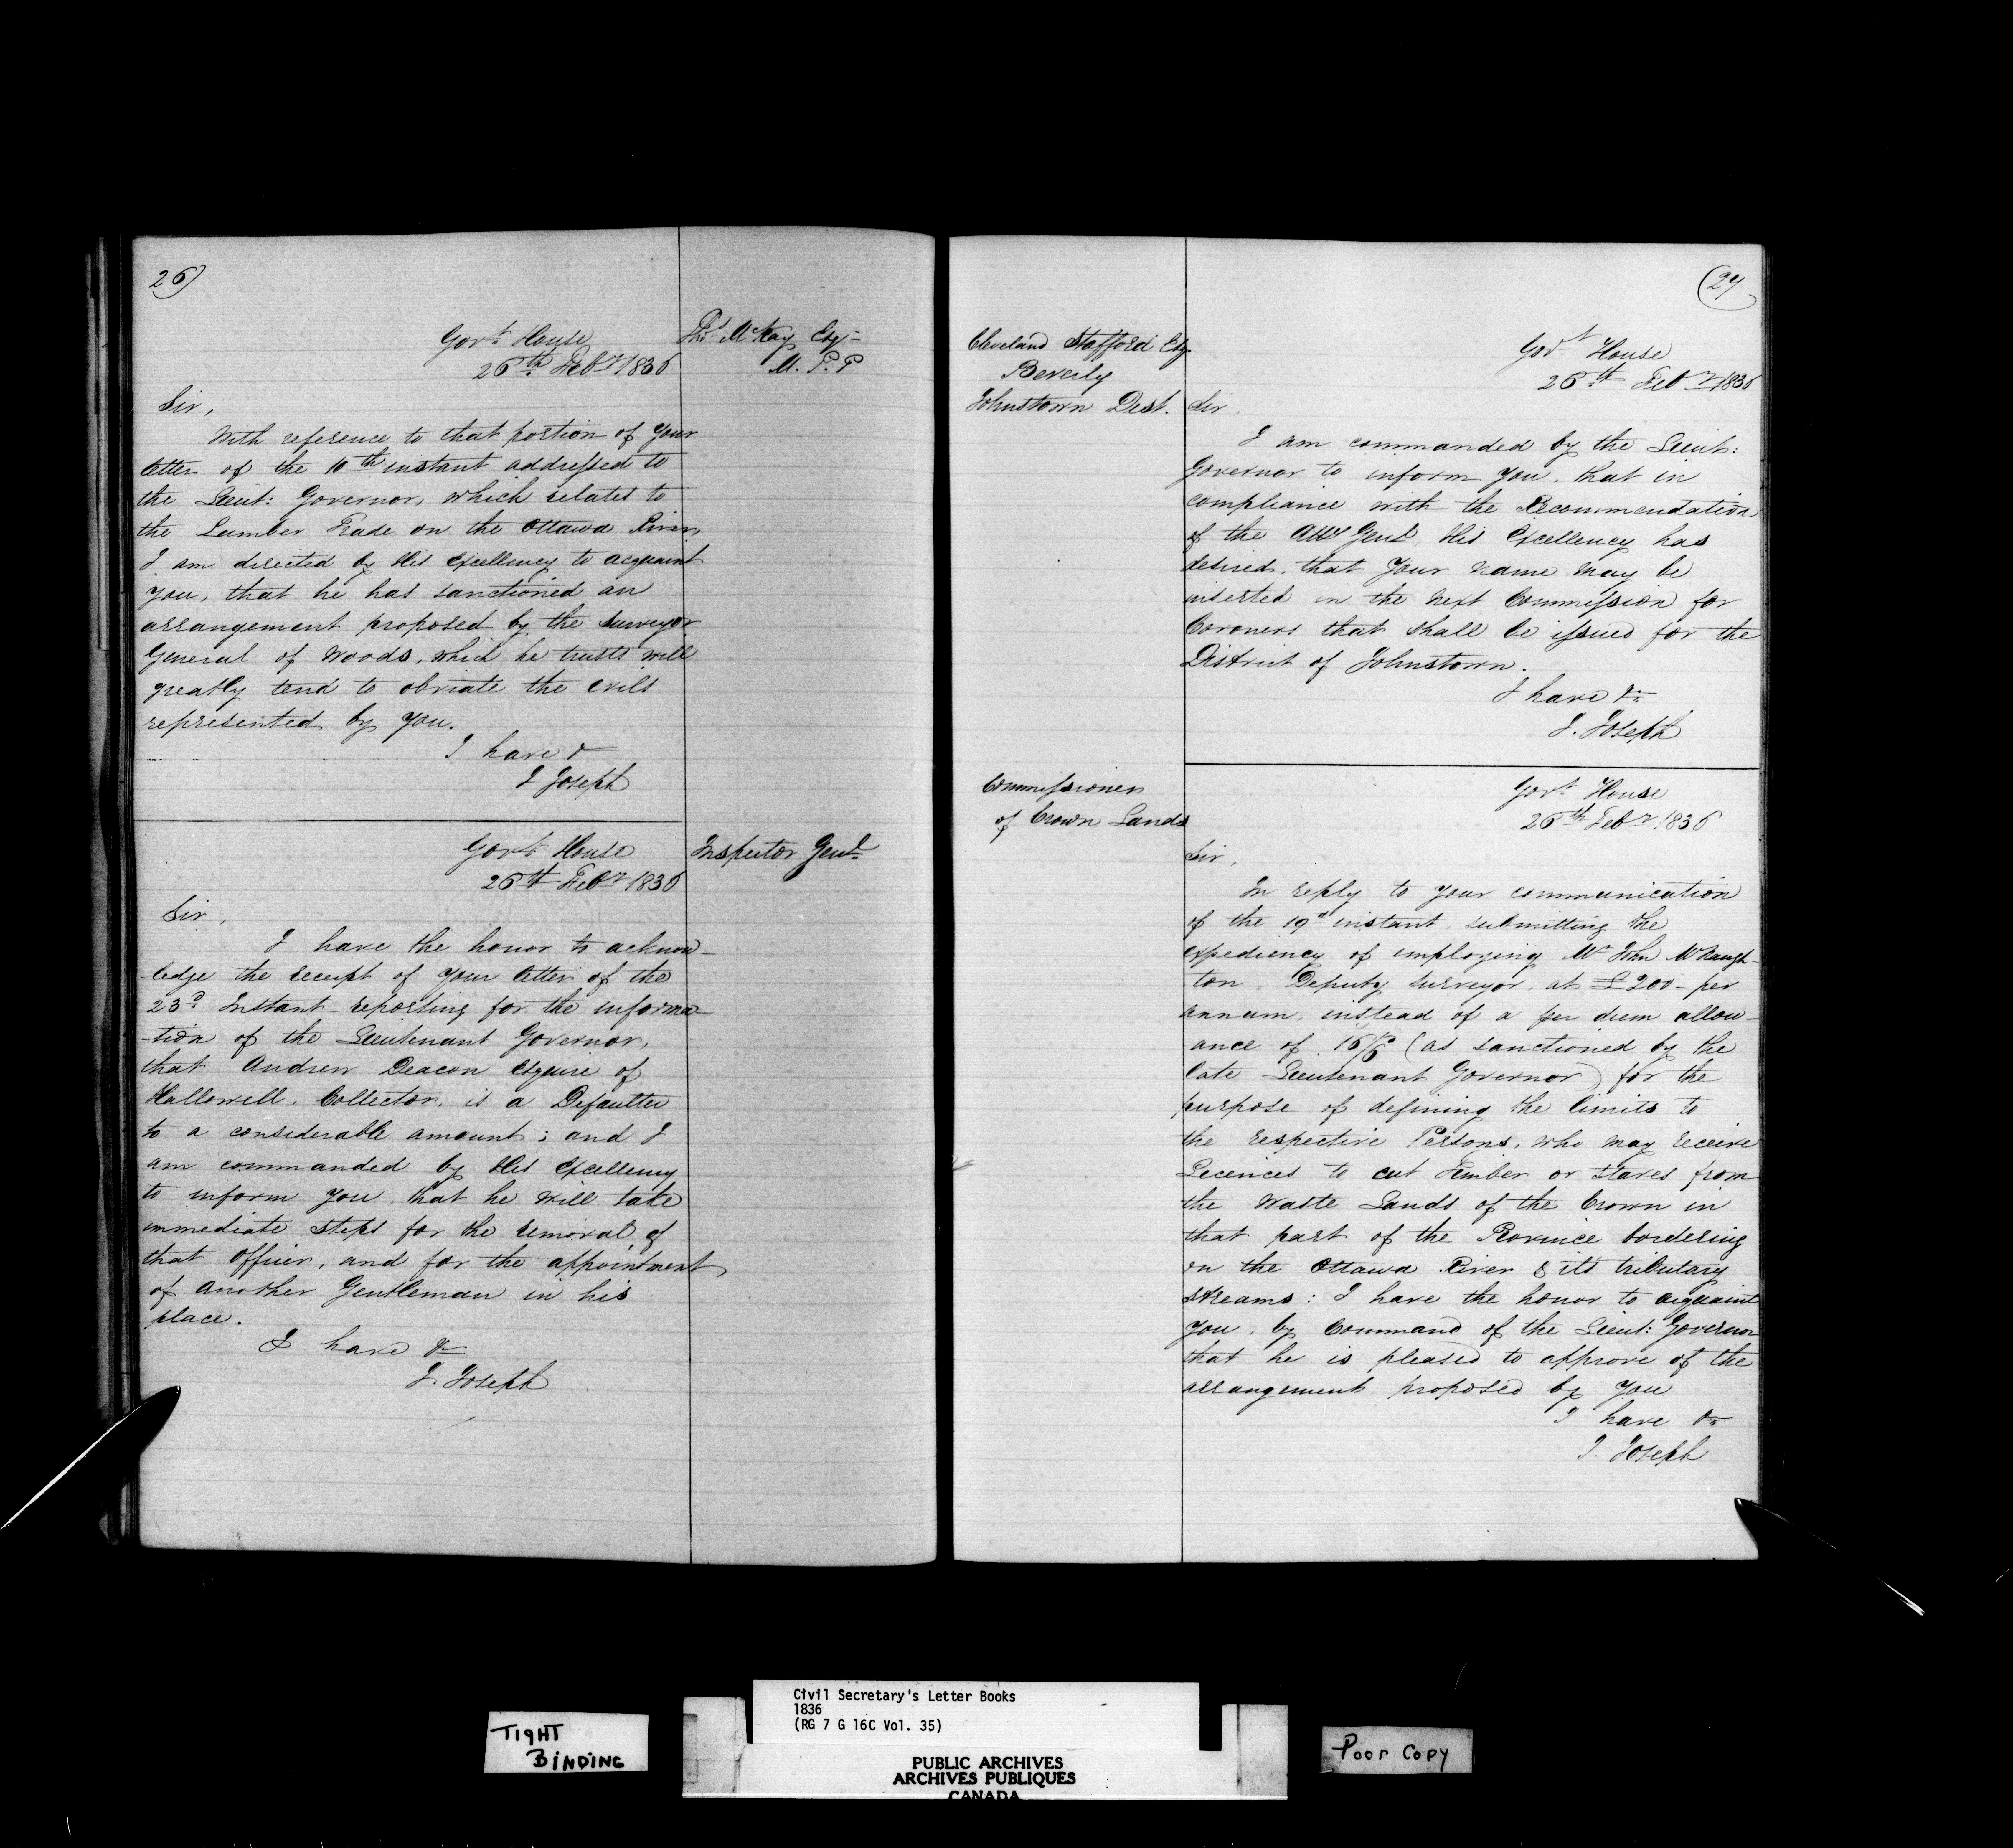 26)
Govt House
26th Feby 1836
Thos McKay Esqr
M. P. P
Sir,
With reference to that portion of Your
letter of the 10th instant addressed to
the Lieut: Governor, which relates to
the Lumber Trade on the Ottawa River,
I am directed by His Excellency to acquaint
you, that he has sanctioned an
arrangement proposed by the Surveyor
General of Woods, which he trusts will
greatly tend to obviate the evils
represented by you.
I have &
J Joseph
Govt House
26th Feby 1836
Inspector Genl
Sir,
I have the honor to acknow-
-ledge the receipt of your letter of the
23d Instant reporting for the informa-
-tion of the Lieutenant Governor,
that Andrew Deacon Esquire of
Hallowell, Collector, is a Defaulter
to a considerable amount; and I
am commanded by His Excellency
to inform you, that he will take
immediate steps for the removal of
that Officer, and for the appointment
of another Gentleman in his
place.
I have &c
J. Joseph
(27
Cleveland Stafford Esq.
Beverly
Johnstown Dist.
Govt House
26th Feby 1836
Sir,
I am commanded by the Lieut:
Governor to inform you, that in
compliance with the Recommendation
of the Atty Genl, His Excellency has
desired, that Your name may be
inserted in the next Commission for
Coroners that shall be issued for the
District of Johnstown.
I have &c
J. Joseph
Commissioner
of Crown Lands
Govt House
26th Feby 1836
Sir,
In reply to your communication
of the 19th instant, submitting the
expediency of employing Mr John McNaugh-
ton Deputy Surveyor, at £200 per
annum, instead of a per diem allow-
ance of (as sanctioned by the
late Lieutenant Governor) for the
purpose of defining the limits to
the respective Persons, who may receive
Licences to cut Timber or Staves from
the Waste Lands of the Crown in
that part of the Province bordering
on the Ottawa River & its tributary
streams: I have the honor to acquaint
you, by Command of the Lieut: Governor
that he is pleased to approve of the
arrangement proposed by you
I have &c
J. Joseph
TIGHT
BINDING
Civil Secretary's Letter Books
1836
(RG 7 G 16C Vol. 35)
PUBLIC ARCHIVES
ARCHIVES PUBLIQUES
CANADA
Poor Copy